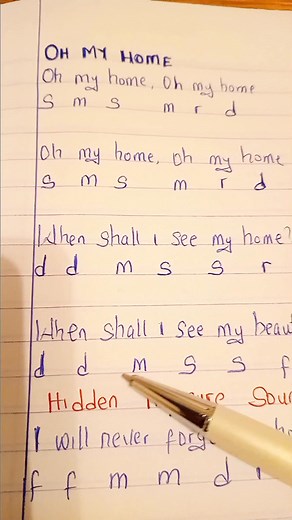 OH MY HOME
Oh my home, Oh my home
s m s m r d
Oh my home, oh my home
s m s m r d
When shall I see my home?
d d m s s r
When shall I see my
d d m s s f
Hidden
I will never
f f m m d